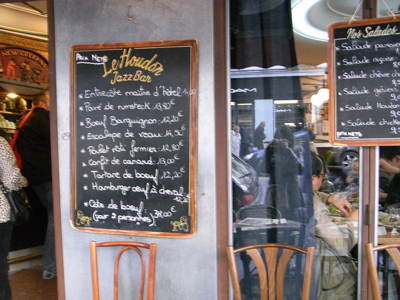 PRIX NETS
Le Houdon
Jazz Bar
* Entrecôte maitre d'hôtel
* Pavé de rumsteck 13,80€
* Boeuf Bourguignon 12,20
* Escalope de veau 14,50€
* Poulet rôti fermier 12,80€
* Confit de canard 13,00€
* Tartare de boeuf 12,20€
* Hamburger oeuf à cheval
12,20€
* Côte de boeuf
(pour 2 personnes) 38,00€
Nos Salades
Salade
Salade niçoise
Salade chèvre
Salade
Salade Houdon
Salade chicken
PRIX NETS